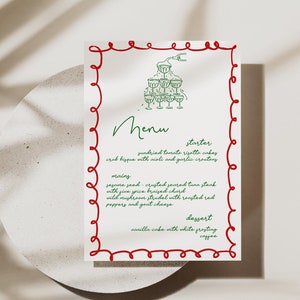 Menu
starter
sundried tomato risotto cakes
crab bisque with aioli and garlic croutons
mains
sesame seed - crusted seared tuna steak
with five spice braised chard
wild mushroom strudel with roasted red
peppers and goat cheese
dessert
vanilla cake with white frosting
coffee